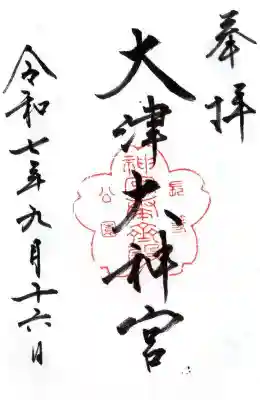 奉拝
大津大神宮
令和七年九月十六日